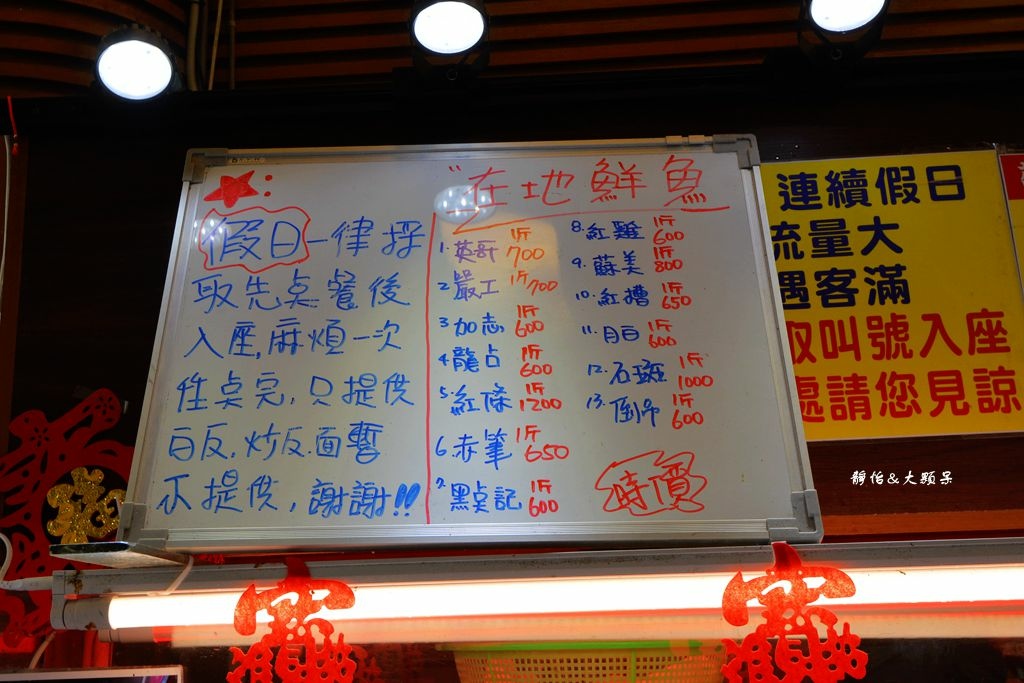 ★:
假日一律採
取先点餐後
入座,麻煩一次
性点完,只提供
白反、炒反.面暫
不提供,謝謝!!
"在地鮮魚
1.英哥 1斤 700
2.嚴工 1斤 700
3.加志 1斤 600
4.龍占 1斤 600
5.紅條 1斤 1200
6.赤筆 1斤 650
7.黑点記 1斤 600
8.紅雞 1斤 600
9.蘇美 1斤 800
10.紅槽 1斤 650
11.月白 1斤 600
12.石斑 1斤 1000
13.倒吊 1斤 600
時價
連續假日
流量大
遇客滿
取叫號入座
處請您見諒
靜怡&大顆呆